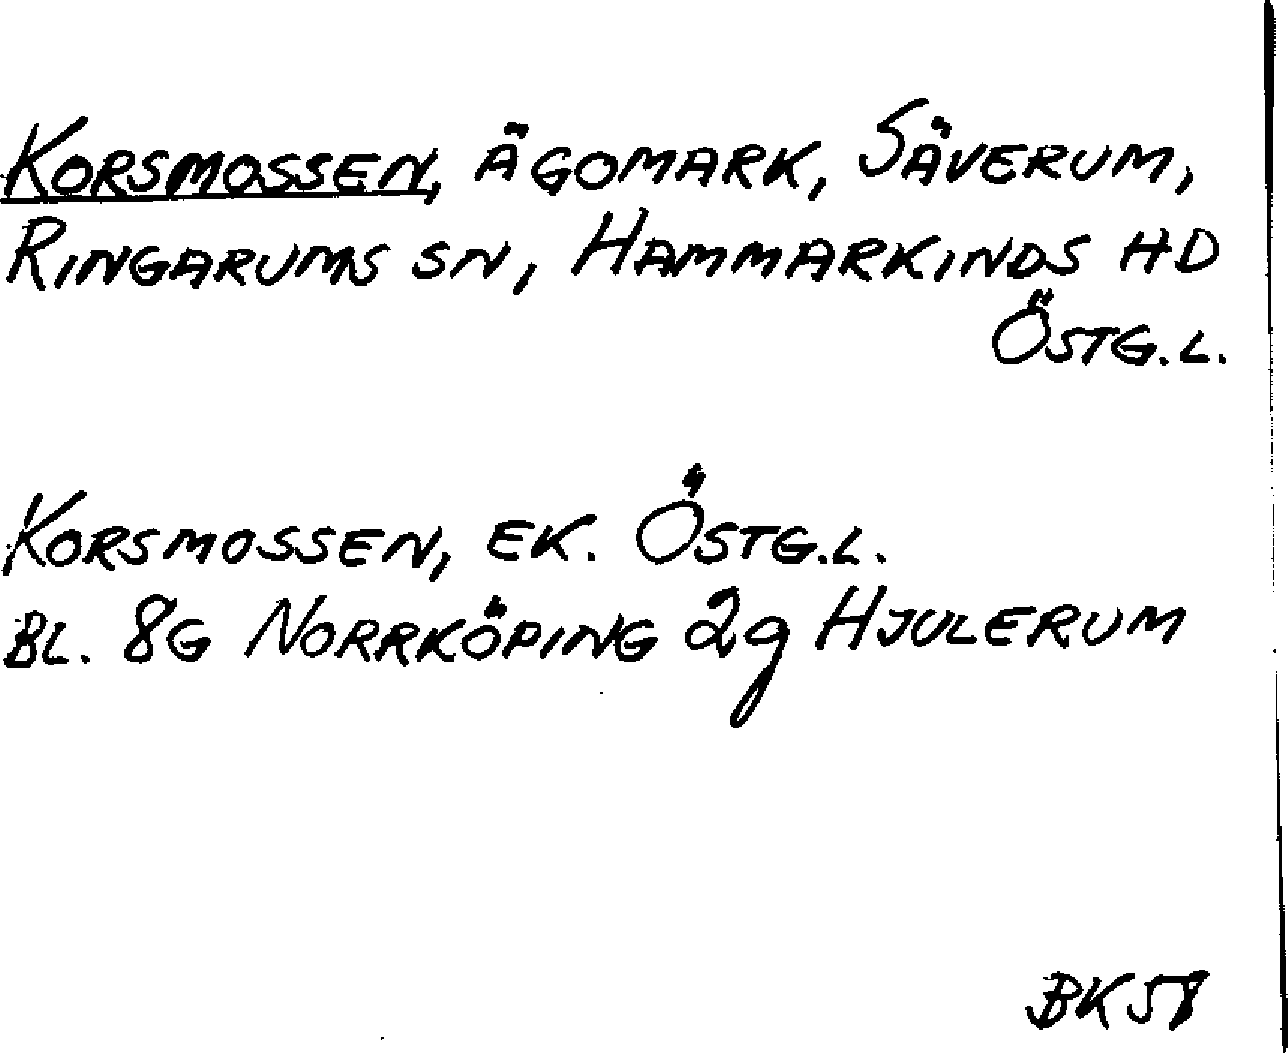 KORSMOSSEN, ÄGOMARK, SÄVERUM,
RINGARUMS SN, HAMMARKINDS HD
ÖSTG.L.
KORSMOSSEN, EK. ÖSTG.L.
BL. 8G NORRKÖPING 2g HJULERUM
BK 58